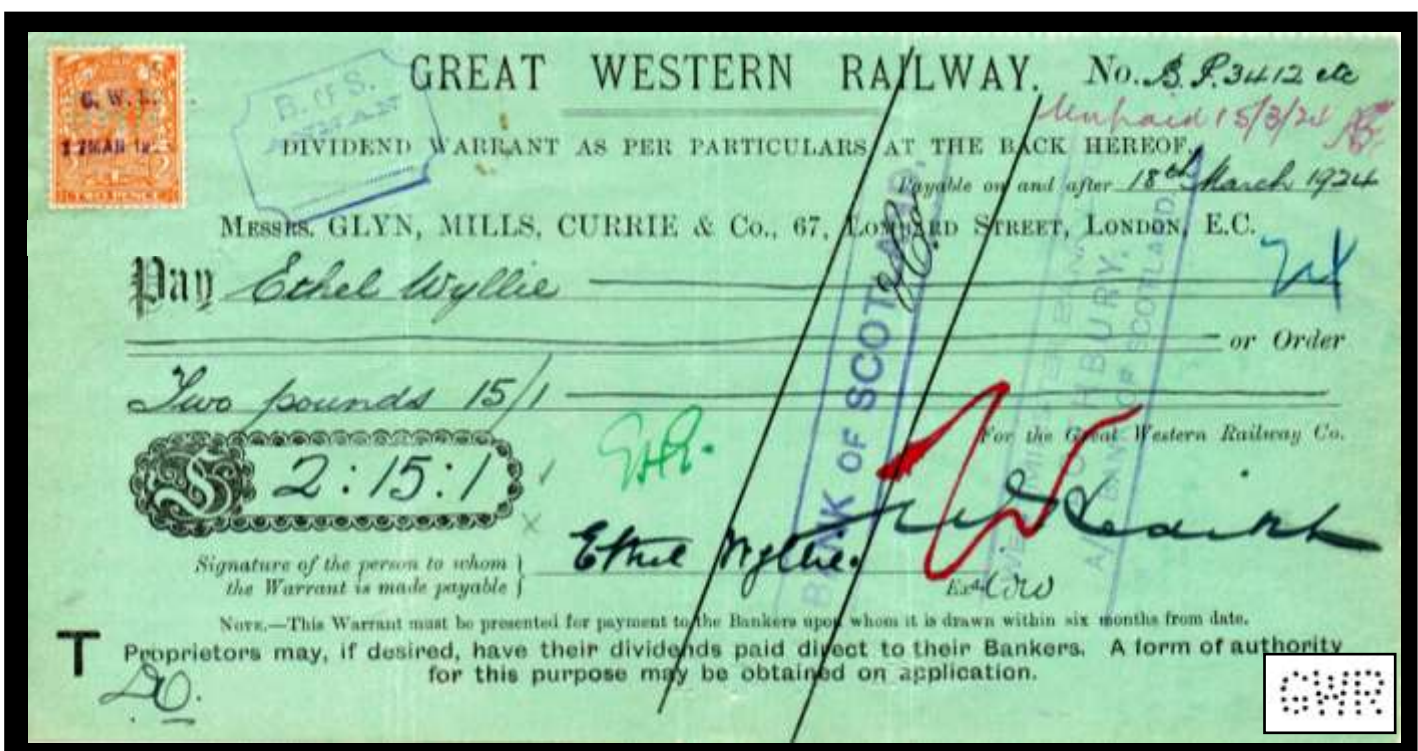 GREAT WESTERN RAILWAY. No. B.P. 3412 etc
Unpaid 15/3/24
G.W.R.
B. OF S.
DIVIDEND WARRANT AS PER PARTICULARS AT THE BACK HEREOF.
TWO PENCE
Payable on and after 18th March 1924
MESSRS. GLYN, MILLS, CURRIE & Co., 67, LOMBARD STREET, LONDON, E.C.
Pay Ethel Wyllie
or Order
Two pounds 15/1
For the Great Western Railway Co.
£ 2:15:1
BANK OF SCOTLAND
Signature of the person to whom } Ethel Wyllie.
the Warrant is made payable }
Exd.
NOTE.—This Warrant must be presented for payment to the Bankers upon whom it is drawn within six months from date.
T Proprietors may, if desired, have their dividends paid direct to their Bankers. A form of authority
for this purpose may be obtained on application.
GWR